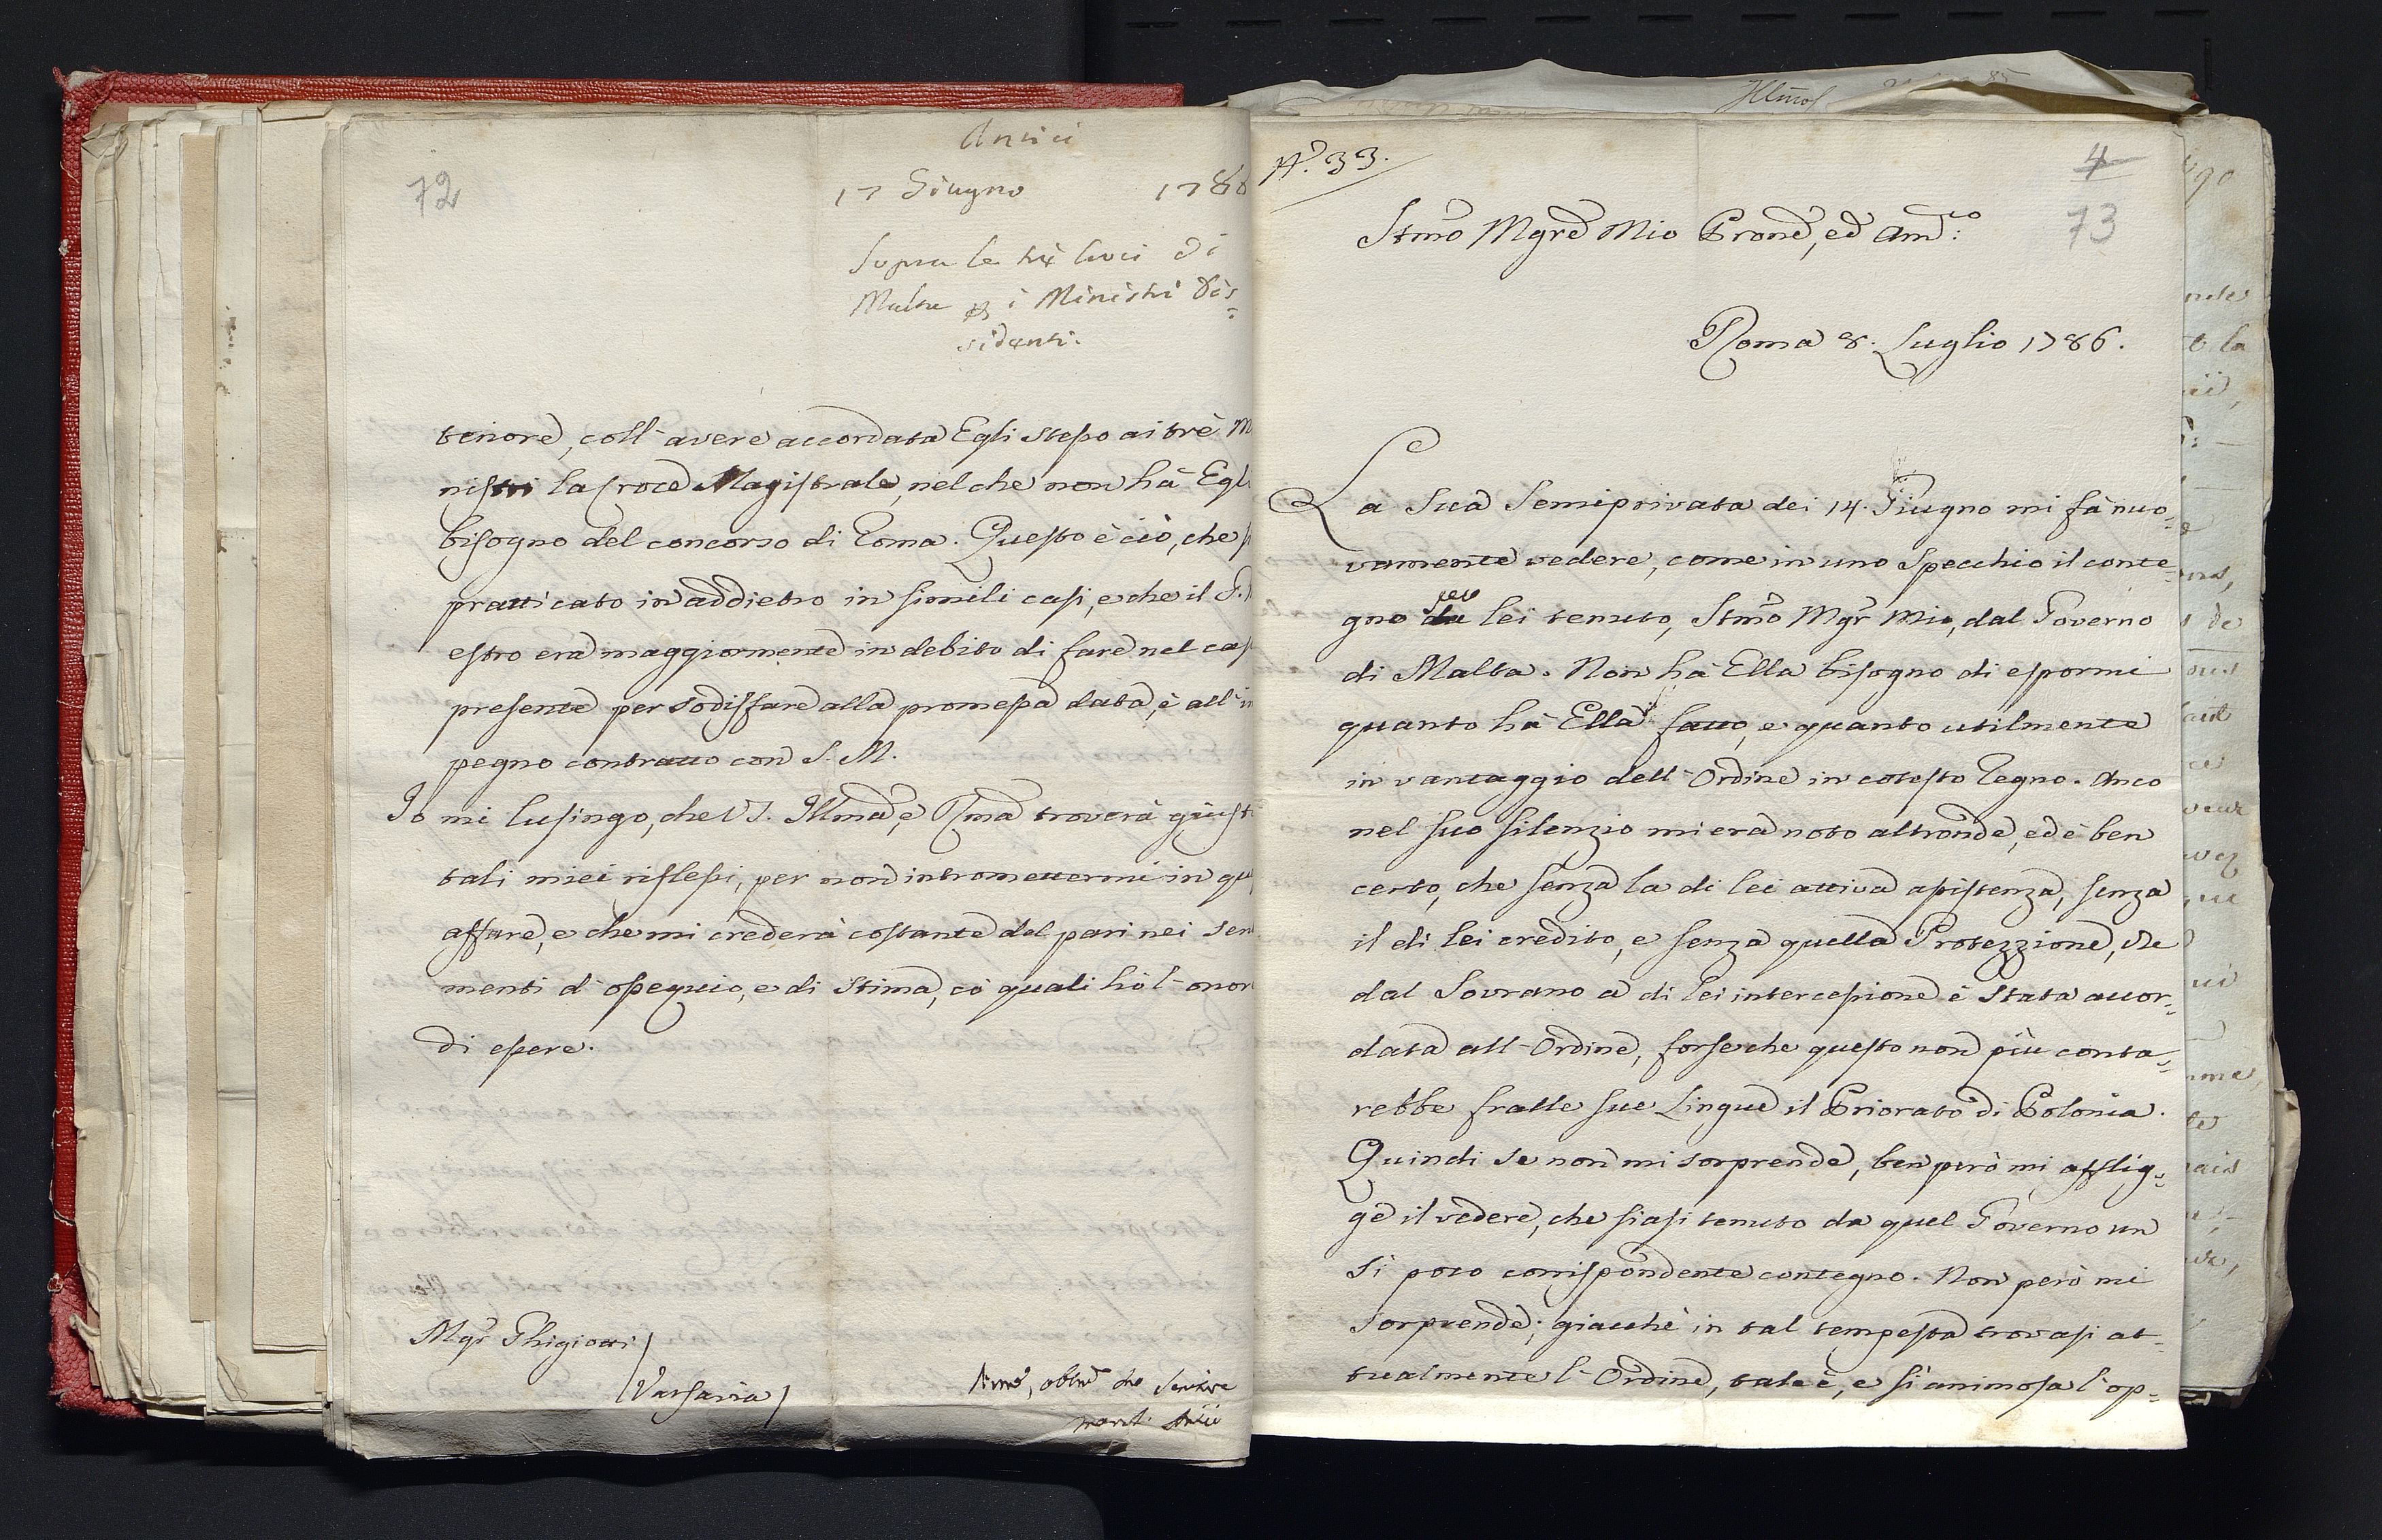 72
Antici
17 Giugno 1786
Sopra le trè croci di
Malta p i Ministri Dis=
sidenti.
tenore, coll'avere accordata Egli stesso ai trè M
nistri la Croce Magistrale, nel che non hà Egli
bisogno del concorso di Roma. Questo è ciò, che
pratticato in addietro in simili casi, e che il G.
estro era maggiormente in debito di fare nel cas
presente per sodisfare alla promessa data, è all'im
pegno contratto con S. M.
Io mi lusingo, che V. S. Illma, e Rma troverà giust
tali miei riflessi, per non intromettermi in qu
affare, e che mi crederà costante del pari nei sen
menti d'ossequio, e di stima, cò quali hò l'onor
di essere.
Mgr Ghigiotti /
/ Varsavia /
obbmo
Antici
N.° 33.
4
73
Stmo Mgre Mio Prone, ed Amco:
Roma 8. Luglio 1786.
La Sua Semiprivata dei 14. Giugno mi fà nuo=
vamente vedere, come in uno Specchio il conte=
gno seco lei tenuto, Stmo Mgr Mio, dal Governo
di Malta. Non hà Ella bisogno di espormi
quanto hà Ella fatto, e quanto utilmente
in vantaggio dell'Ordine in cotesto Regno. Anco
nel suo silenzio mi era noto altronde, ed è ben
certo, che senza la di lei attiva assistenza, senza
il di lei credito, e senza quella Protezzione, che
dal Sovrano a di lei intercessione è stata accor=
data all'Ordine, forse che questo non più conta=
rebbe fralle sue Lingue il Priorato di Polonia.
Quindi se non mi sorprende, ben però mi afflig=
ge il vedere, che siasi tenuto da quel Governo un
sì poco corrispondente contegno. Non però mi
sorprende; giacchè in tal tempesta trovasi at=
tualmente l'Ordine, tale è, e sì animosa l'op=